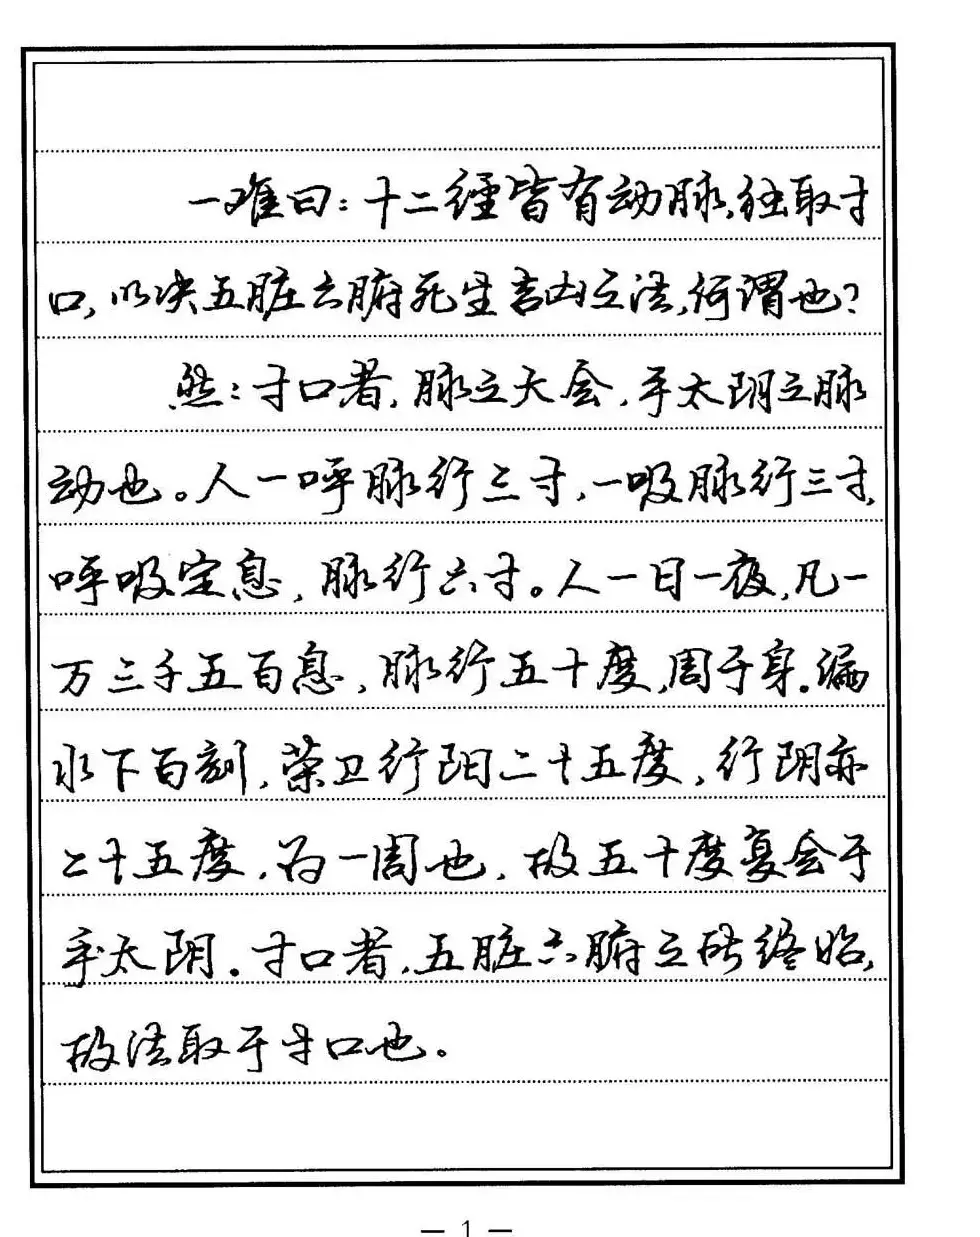 一难曰：十二经皆有动脉，独取寸
口，以决五脏六腑死生吉凶之法，何谓也？
然：寸口者，脉之大会，手太阴之脉
动也。人一呼脉行三寸，一吸脉行三寸，
呼吸定息，脉行六寸。人一日一夜，凡一
万三千五百息，脉行五十度，周于身。漏
水下百刻，荣卫行阳二十五度，行阴亦
二十五度，为一周也，故五十度复会于
手太阴。寸口者，五脏六腑之所终始，
故法取于寸口也。
— 1 —